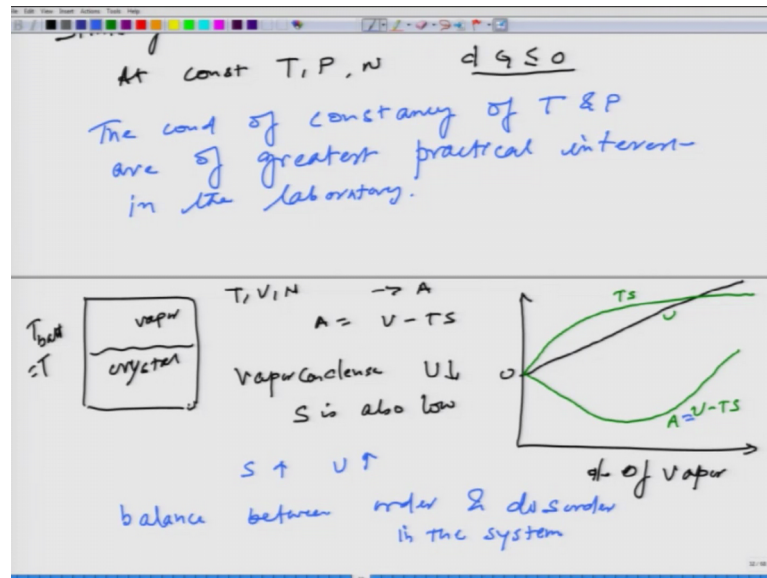 Edit View Insert Actions Tools Help
At const T, P, N dG ≤ 0
The cond of constancy of T & P
are of greatest practical interest
in the laboratory.
T, V, N → A
A = U - TS
Vapor condense U↓
S is also low
S ↑ U ↑
balance between order & disorder
in the system
T bath
= T
vapor
crystal
TS
U
0
A = U - TS
of vapor